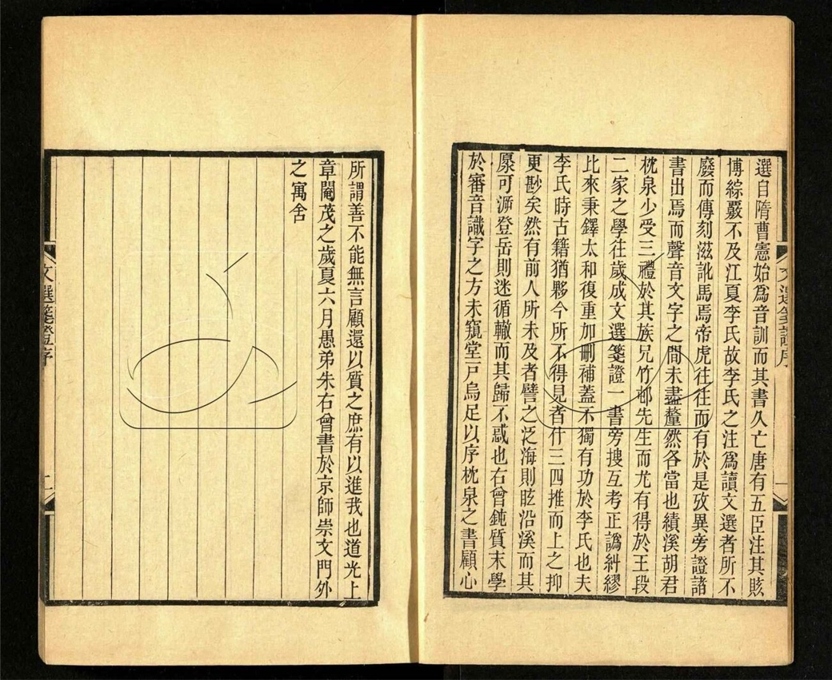 選自隋曹憲始為音訓而其書久亡唐有五臣注其賅
博綜覈不及江夏李氏故李氏之注為讀文選者所不
廢而傳刻滋訛馬焉帝虎往往而有於是攷異旁證諸
書出焉而聲音文字之間未盡釐然各當也績溪胡君
枕泉少受三禮於其族兄竹邨先生而尤有得於王段
二家之學往歲成文選箋證一書旁搜互考正譌糾繆
比來秉鐸太和復重加刪補蓋不獨有功於李氏也夫
李氏時古籍猶夥今所不得見者什三四推而上之抑
更尠矣然有前人所未及者譬之泛海則眩沿溪而其
原可泝登岳則迷循轍而其歸不惑也右曾鈍質末學
於審音識字之方未窺堂戸烏足以序枕泉之書顧心
文選箋證序
一
所謂善不能無言顧還以質之庶有以進我也道光上
章閹茂之歲夏六月愚弟朱右曾書於京師崇文門外
之寓舍
文選箋證序